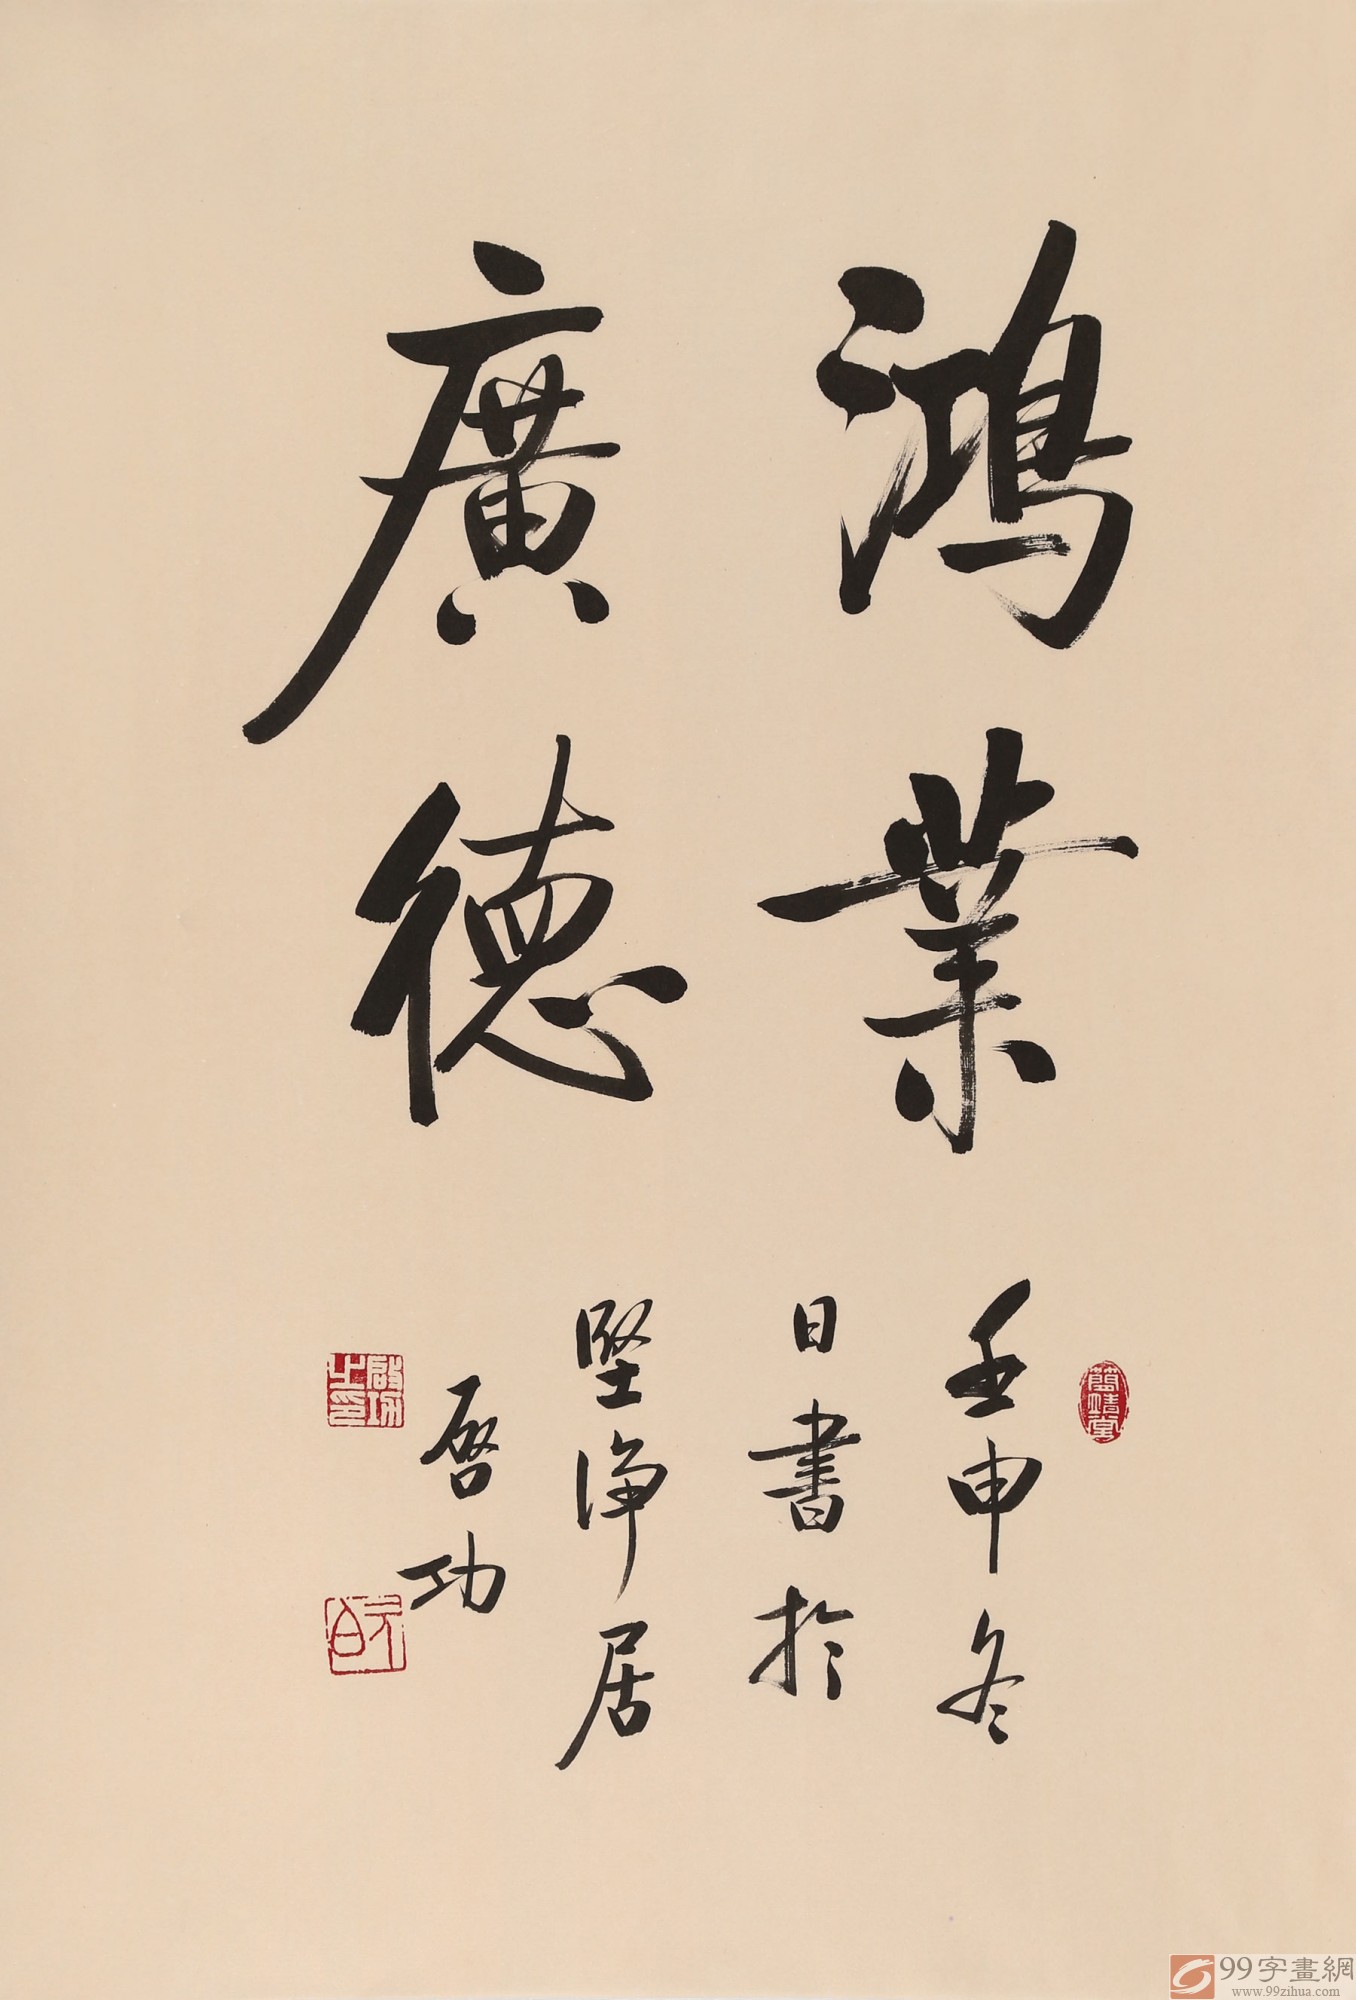 鴻業
廣德
壬申冬
日書於
堅淨居
啓功
簡靖堂
啟功之印
元白
99字畫網
www.99zihua.com